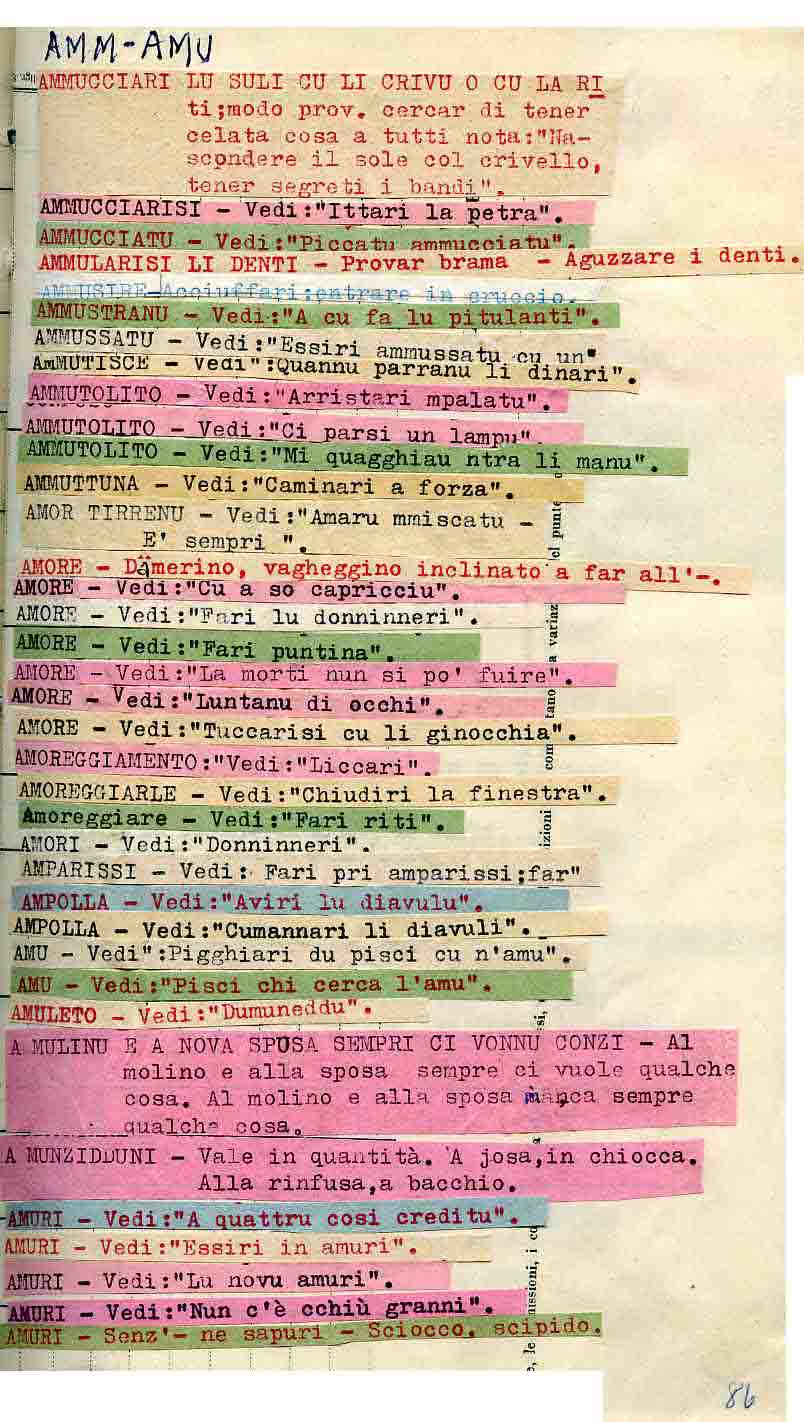 AMM-AMU
AMMUCCIARI LU SULI CU LI CRIVU O CU LA RI
ti;modo prov. cercar di tener
celata cosa a tutti nota:"Na-
scondere il sole col crivello,
tener segreti i bandi".
AMMUCCIARISI - Vedi:"Ittari la petra".
AMMUCCIATU - Vedi:"Piccatu ammucciatu".
AMMULARISI LI DENTI - Provar brama - Aguzzare i denti.
AMMUSIRE-Acciuffari:entrare in cruccio.
AMMUSTRANU - Vedi:"A cu fa lu pitulanti".
AMMUSSATU - Vedi:"Essiri ammussatu cu un"
AmMUTISCE - Vedi":Quannu parranu li dinari".
AMMUTOLITO - Vedi:"Arristari mpalatu".
AMMUTOLITO - Vedi:"Ci parsi un lampu".
AMMUTOLITO - Vedi:"Mi quagghiau ntra li manu".
AMMUTTUNA - Vedi:"Caminari a forza".
AMOR TIRRENU - Vedi:"Amaru mmiscatu -
E' sempri ".
AMORE - Damerino, vagheggino inclinato a far all'-.
AMORE - Vedi:"Cu a so capricciu".
AMORE - Vedi:"Fari lu donninneri".
AMORE - Vedi:"Fari puntina".
AMORE - Vedi:"La morti nun si po' fuire".
AMORE - Vedi:"Luntanu di occhi".
AMORE - Vedi:"Tuccarisi cu li ginocchia".
AMOREGGIAMENTO:"Vedi:"Liccari".
AMOREGGIARLE - Vedi:"Chiudiri la finestra".
Amoreggiare - Vedi:"Fari riti".
AMORI - Vedi:"Donninneri".
AMPARISSI - Vedi: Fari pri amparissi;far"
AMPOLLA - Vedi:"Aviri lu diavulu".
AMPOLLA - Vedi:"Cumannari li diavuli".
AMU - Vedi":Pigghiari du pisci cu n'amu".
AMU - Vedi:"Pisci chi cerca l'amu".
AMULETO - Vedi:"Dumuneddu".
A MULINU E A NOVA SPUSA SEMPRI CI VONNU CONZI - Al
molino e alla sposa sempre ci vuole qualche
cosa. Al molino e alla sposa manca sempre
qualche cosa.
A MUNZIDDUNI - Vale in quantità. A josa,in chiocca.
Alla rinfusa,a bacchio.
AMURI - Vedi:"A quattru cosi creditu".
AMURI - Vedi:"Essiri in amuri".
AMURI - Vedi:"Lu novu amuri".
AMURI - Vedi:"Nun c'è cchiù granni".
AMURI - Senz'- ne sapuri - Sciocco. scipido.
el punte
a variaz
tano
com
izioni
si,
issioni, i co
, le
86